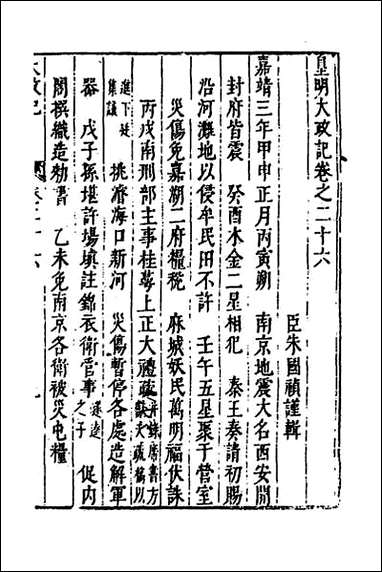 皇明大政記卷之二十六
臣朱國禎謹輯
嘉靖三年甲申正月丙寅朔　南京地震大名西安開
封府皆震　癸酉水金二星相犯　秦王奏請初賜
沿河灘地以侵牟民田不許　壬午五星聚于營室
災傷免嘉湖二府糧稅　麻城妖民萬明福伏誅
丙戌南刑部主事桂萼上正大禮疏并錄席書方獻夫疏稿以
進下廷集議　挑濬海口新河　災傷暫停各處造解軍
器　戊子孫堪許場填註錦衣衛管事燧逵之子　促内
閣撰織造勑書　乙未免南京各衛被災屯糧
大政記　卷二十六